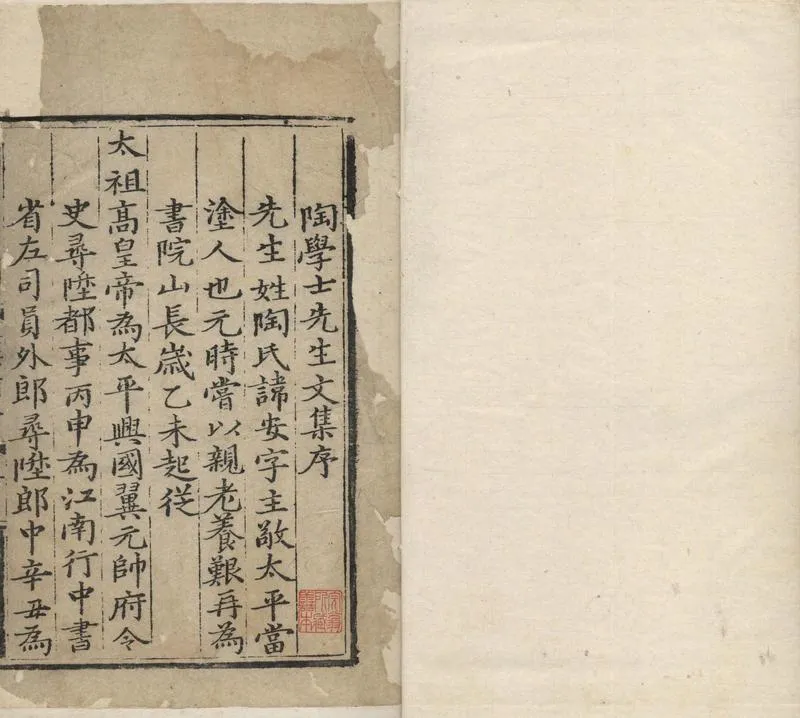 陶學士先生文集序
先生姓陶氏諱安字主敬太平當
塗人也元時嘗以親老養艱再為
書院山長歳乙未起従
太祖髙皇帝為太平興國翼元帥府令
史尋陞都事丙申為江南行中書
省左司員外郎尋陞郎中辛丑為